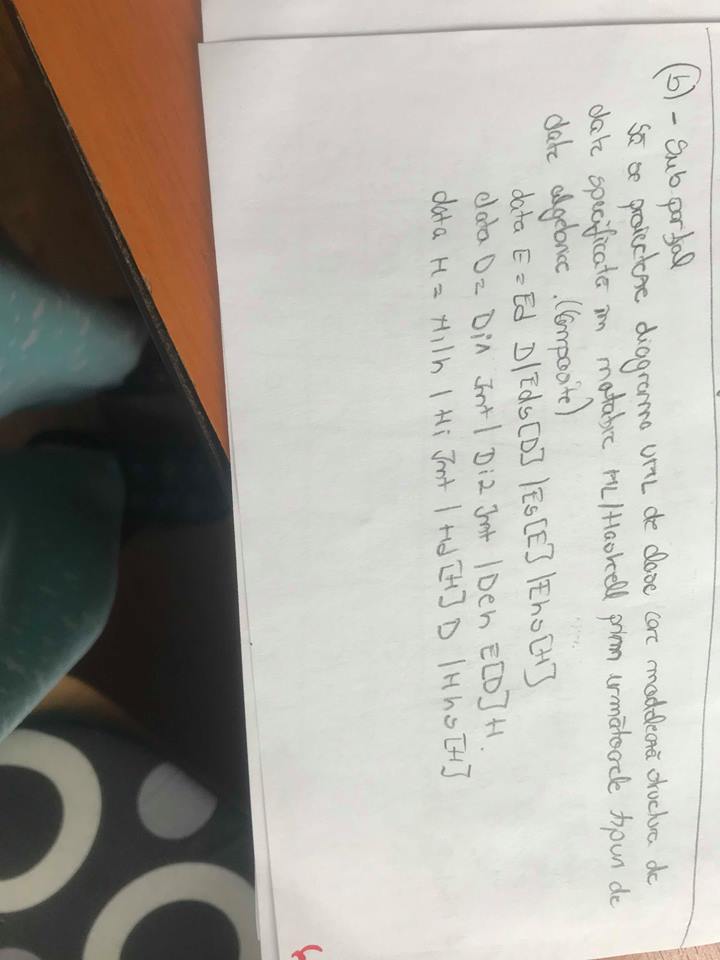 (b) - Sub parțial
Să se proiecteze diagrama UML de clase care modelează structura de
date specificată în notație ML/Haskell prin următoarele tipuri de
date algebrice. (Composite)
data E = Ed D | Eds [D] | Es [E] | Ehs [H]
data D = Di1 Int | Di2 Int | Deh E [D] H.
data H = Hilh | Hi Int | Hd [H] D | Hhs [H]